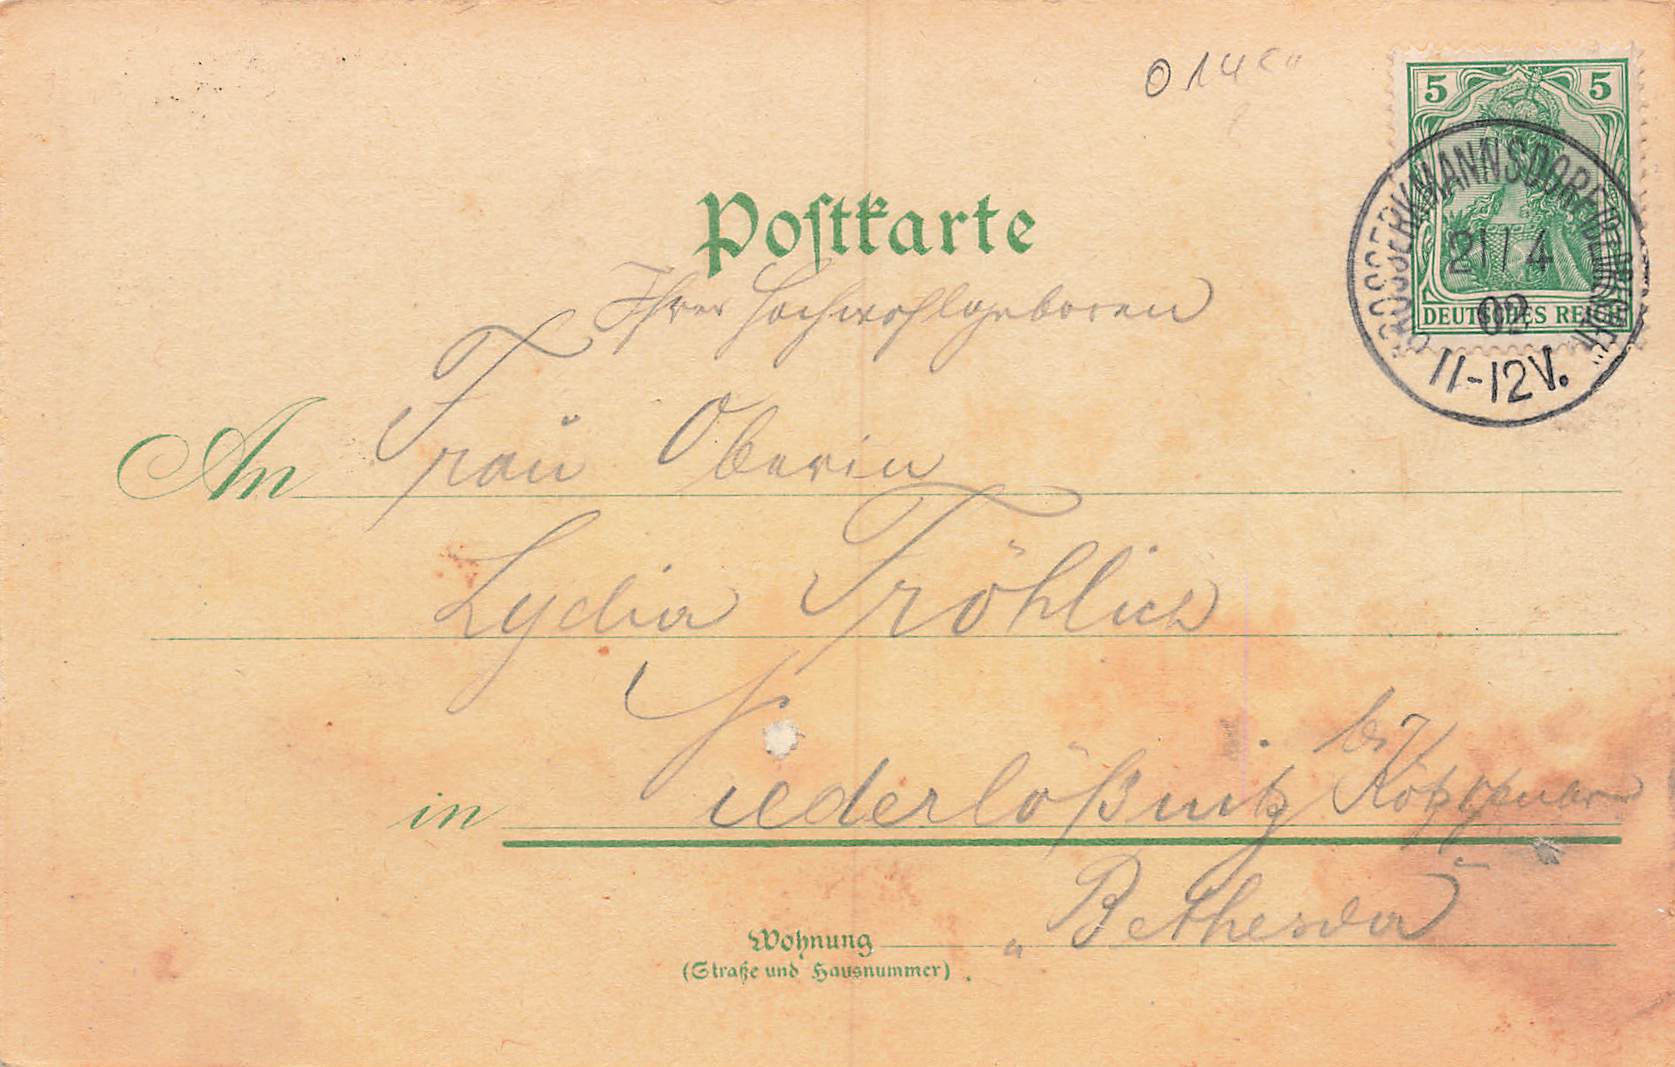 0 14
5 5
DEUTSCHES REICH
21/4
02
11-12V.
Postkarte
Ihrer Hochwohlgeboren
An Frau Oberin
Lydia Fröhlich
bei
in Niederlößnitz Kötzschenbroda
Wohnung „Bethesda
(Straße und Hausnummer)